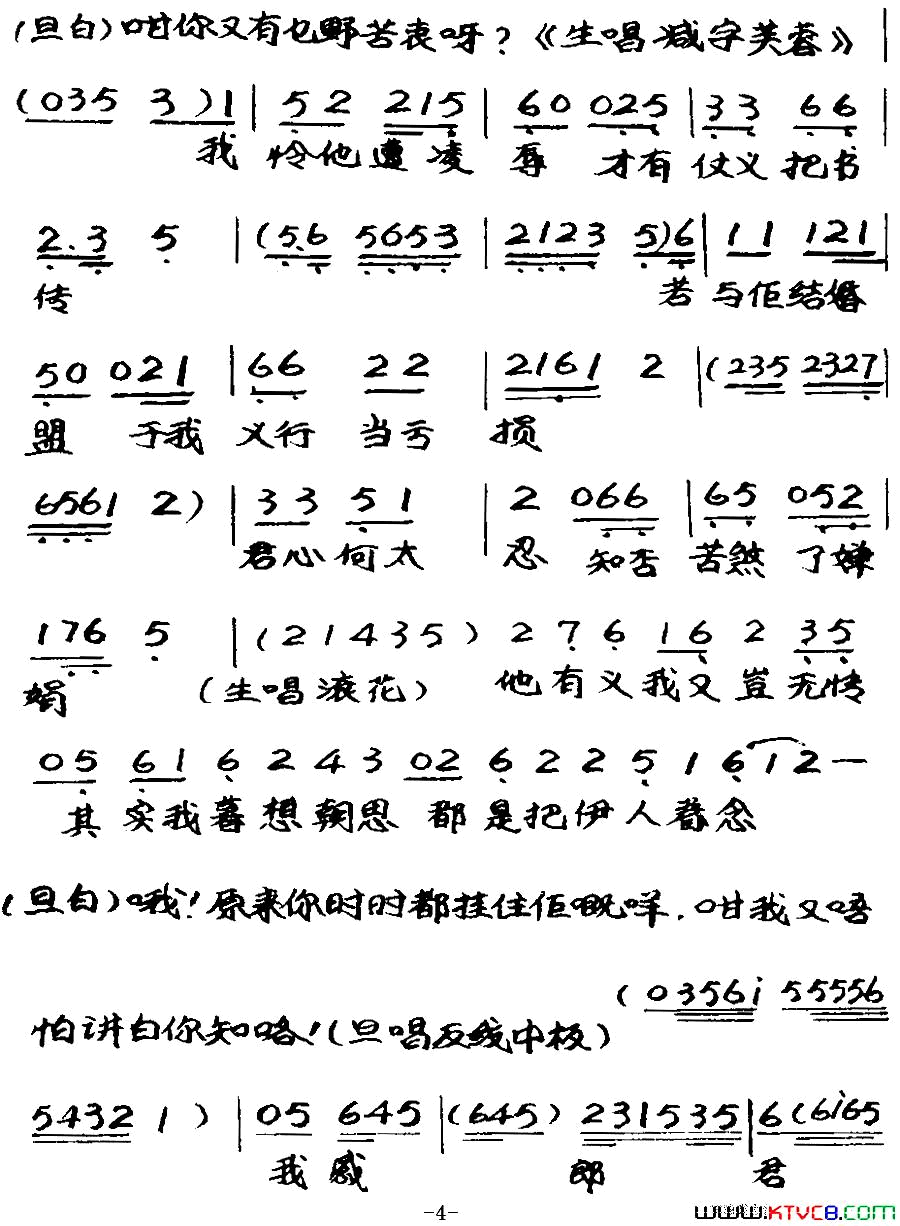 (旦白)咁你又有乜野苦衷呀?《生唱减字芙蓉》|
(035 3)1| 52 215| 60 025| 33 66|
我 怜他遭凌 辱 才有 仗义 把书
2.3 5 |(5.6 5653|2123 5)6|11 121|
传 若 与佢结婚
50 021|66 22|2161 2|(235 2327|
盟 于我 义行 当亏 损
6561 2)|33 51|2 066|65 052|
君心何太 忍 知否 苦煞 了婵
176 5 |(21435) 2 7 6 16 2 35
娟 (生唱滚花) 他有义我又岂无情
05 61 6 2 4 3 02 6 2 2 5 1 6 1 2 —
其 实我暮想朝思 都是把伊人眷念
(旦白)哦!原来你时时都挂住佢嘅咩,咁我又唔
(0356i 55556
怕讲白你知咯!(旦唱反线中板)
5432 1 )|05 645|(645) 231535|6(6i65
我感 郎 君
-4-
WWW.KTVC8.COM